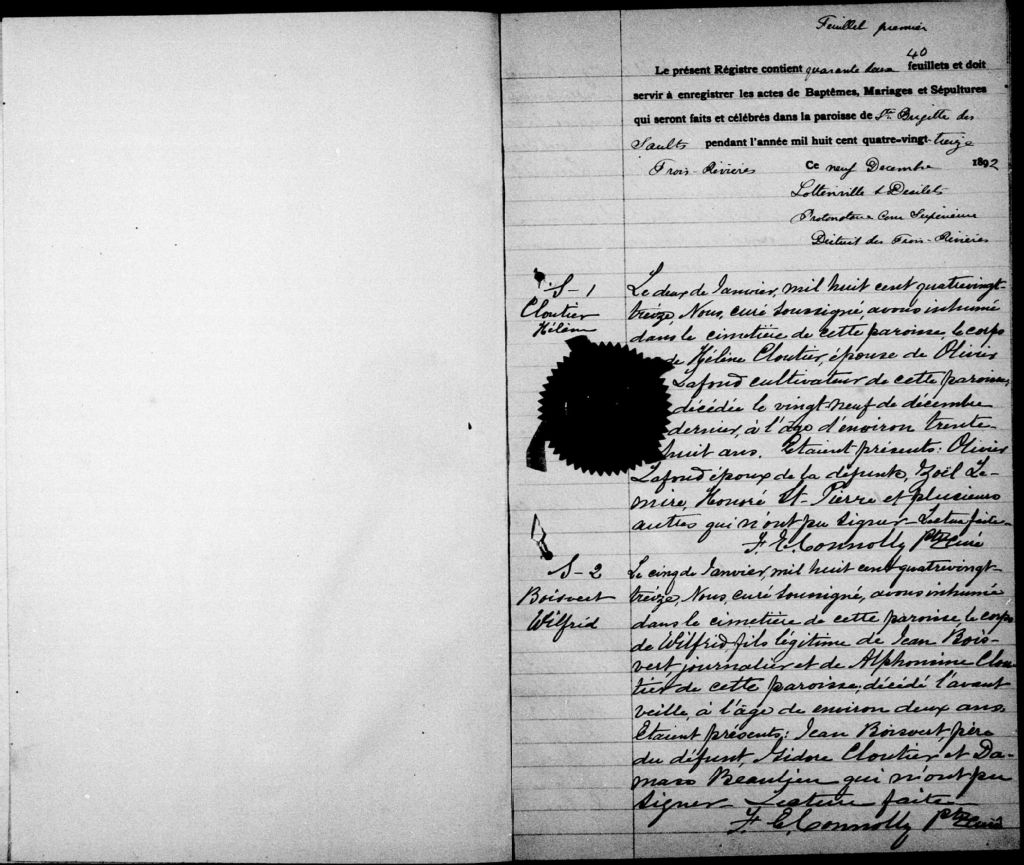 Feuillet premier
Le présent Régistre contient quarante deux 40 feuillets et doit
servir à enregistrer les actes de Baptêmes, Mariages et Sépultures
qui seront faits et célébrés dans la paroisse de Ste Brigitte des
Saults pendant l'année mil huit cent quatre-vingt-treize
Trois-Rivieres Ce neuf Decembre 1892
Lottinville & Desilets
Protonotaire Cour Supérieure
District des Trois-Rivières
S-1
Cloutier
Hélène
Le deux de Janvier, mil huit cent quatrevingt-
treize, Nous, curé soussigné, avons inhumé
dans le cimetière de cette paroisse, le corps
de Hélène Cloutier, épouse de Olivier
Lafond cultivateur de cette paroisse,
décédée le vingt-neuf de décembre
dernier, à l'âge d'environ trente-
huit ans. Etaient présents: Olivier
Lafond époux de la défunte, Zoël Le-
mire, Honoré St-Pierre et plusieurs
autres qui n'ont pu signer_ Lecture faite_
F. E. Connolly Ptre Curé
S-2
Boisvert
Wilfrid
Le cinq de Janvier, mil huit cent quatrevingt-
treize, Nous, curé soussigné, avons inhumé
dans le cimetière de cette paroisse, le corps
de Wilfrid, fils légitime de Jean Bois-
vert, journalier et de Alphonsine Clou-
tier de cette paroisse, décédé l'avant
veille, à l'âge de environ deux ans.
Etaient présents: Jean Boisvert, père
du défunt, Isidore Cloutier et Da-
mase Beaulieu qui n'ont pu
signer_ Lecture faite_
F. E. Connolly Ptre Curé